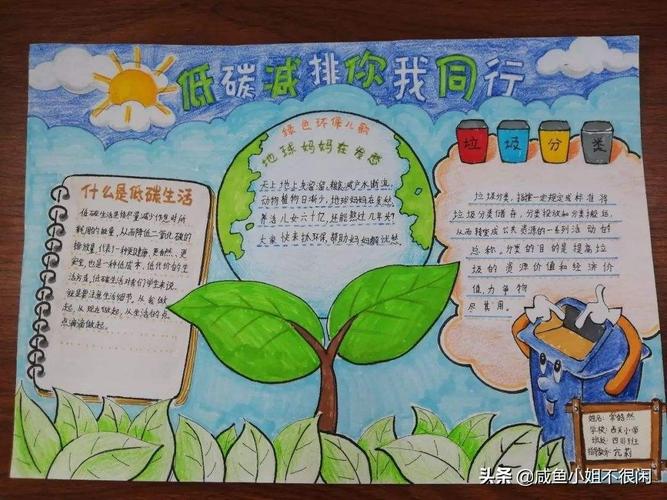 低碳减排你我同行
什么是低碳生活
低碳生活是指尽量减少作息时所
耗用的能量,从而降低二氧化碳的
排放量,代表了一种更健康、更自然、更
安全,也是一种低成本、低代价的生
活方式,低碳生活对我们学生来说,
就是要注意生活细节,从我做
起,从现在做起,从生活的点
点滴滴做起。
绿色环保儿歌
地球妈妈在发愁
天上地上臭溜溜,粮食减产水断流,
动物植物日渐少,地球妈妈在发愁,
养活儿女六十亿,还能熬过几年头?
大家快来环保,帮助妈妈解忧愁
垃圾分类
垃圾分类,指按一定规定或标准将
垃圾分类储存,分类投放和分类搬运,
从而转变成公共资源的一系列活动的
总称。分类的目的是提高垃
圾的资源价值和经济价
值,力争物
尽其用。
姓名:
学校:西关小学
班级:四
指导教师:
头条 @咸鱼小姐不很闲